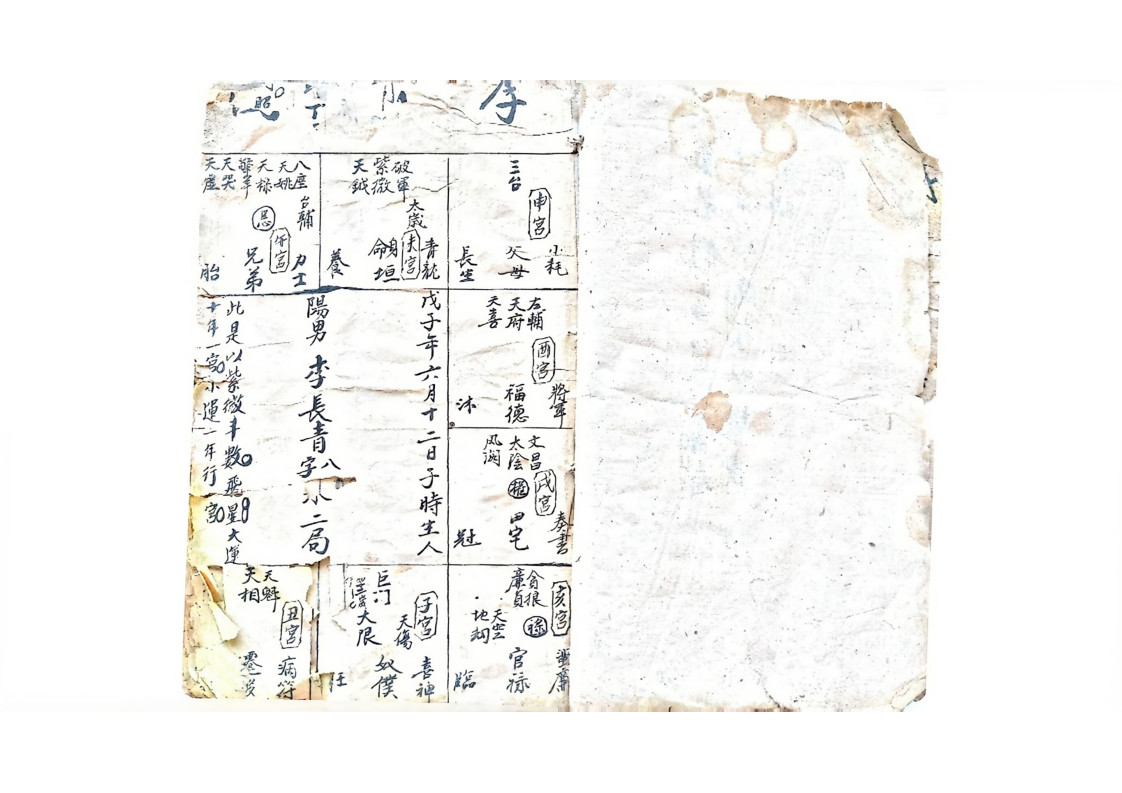 李
照
三台
申宮
小耗
父母
長生
破軍
紫微
天鉞
太歲
未宮
青龍
身命垣
養
八座
天姚
天祿
天哭
天虛
台輔
午宮
力士
兄弟
胎
左輔
天府
天喜
酉宮
將軍
福德
沐
文昌
太陰
戌宮
奏書
田宅
冠
戊子年六月十二日子時生人
陽男 李長青八字 水二局
此是以紫微斗數飛星大運
十年一宮小運一年行宮
貪狼
廉貞
亥宮
祿
天空
官祿
臨
巨门
子宮
天傷
大限
喜神
奴僕
天魁
天相
丑宮
病符